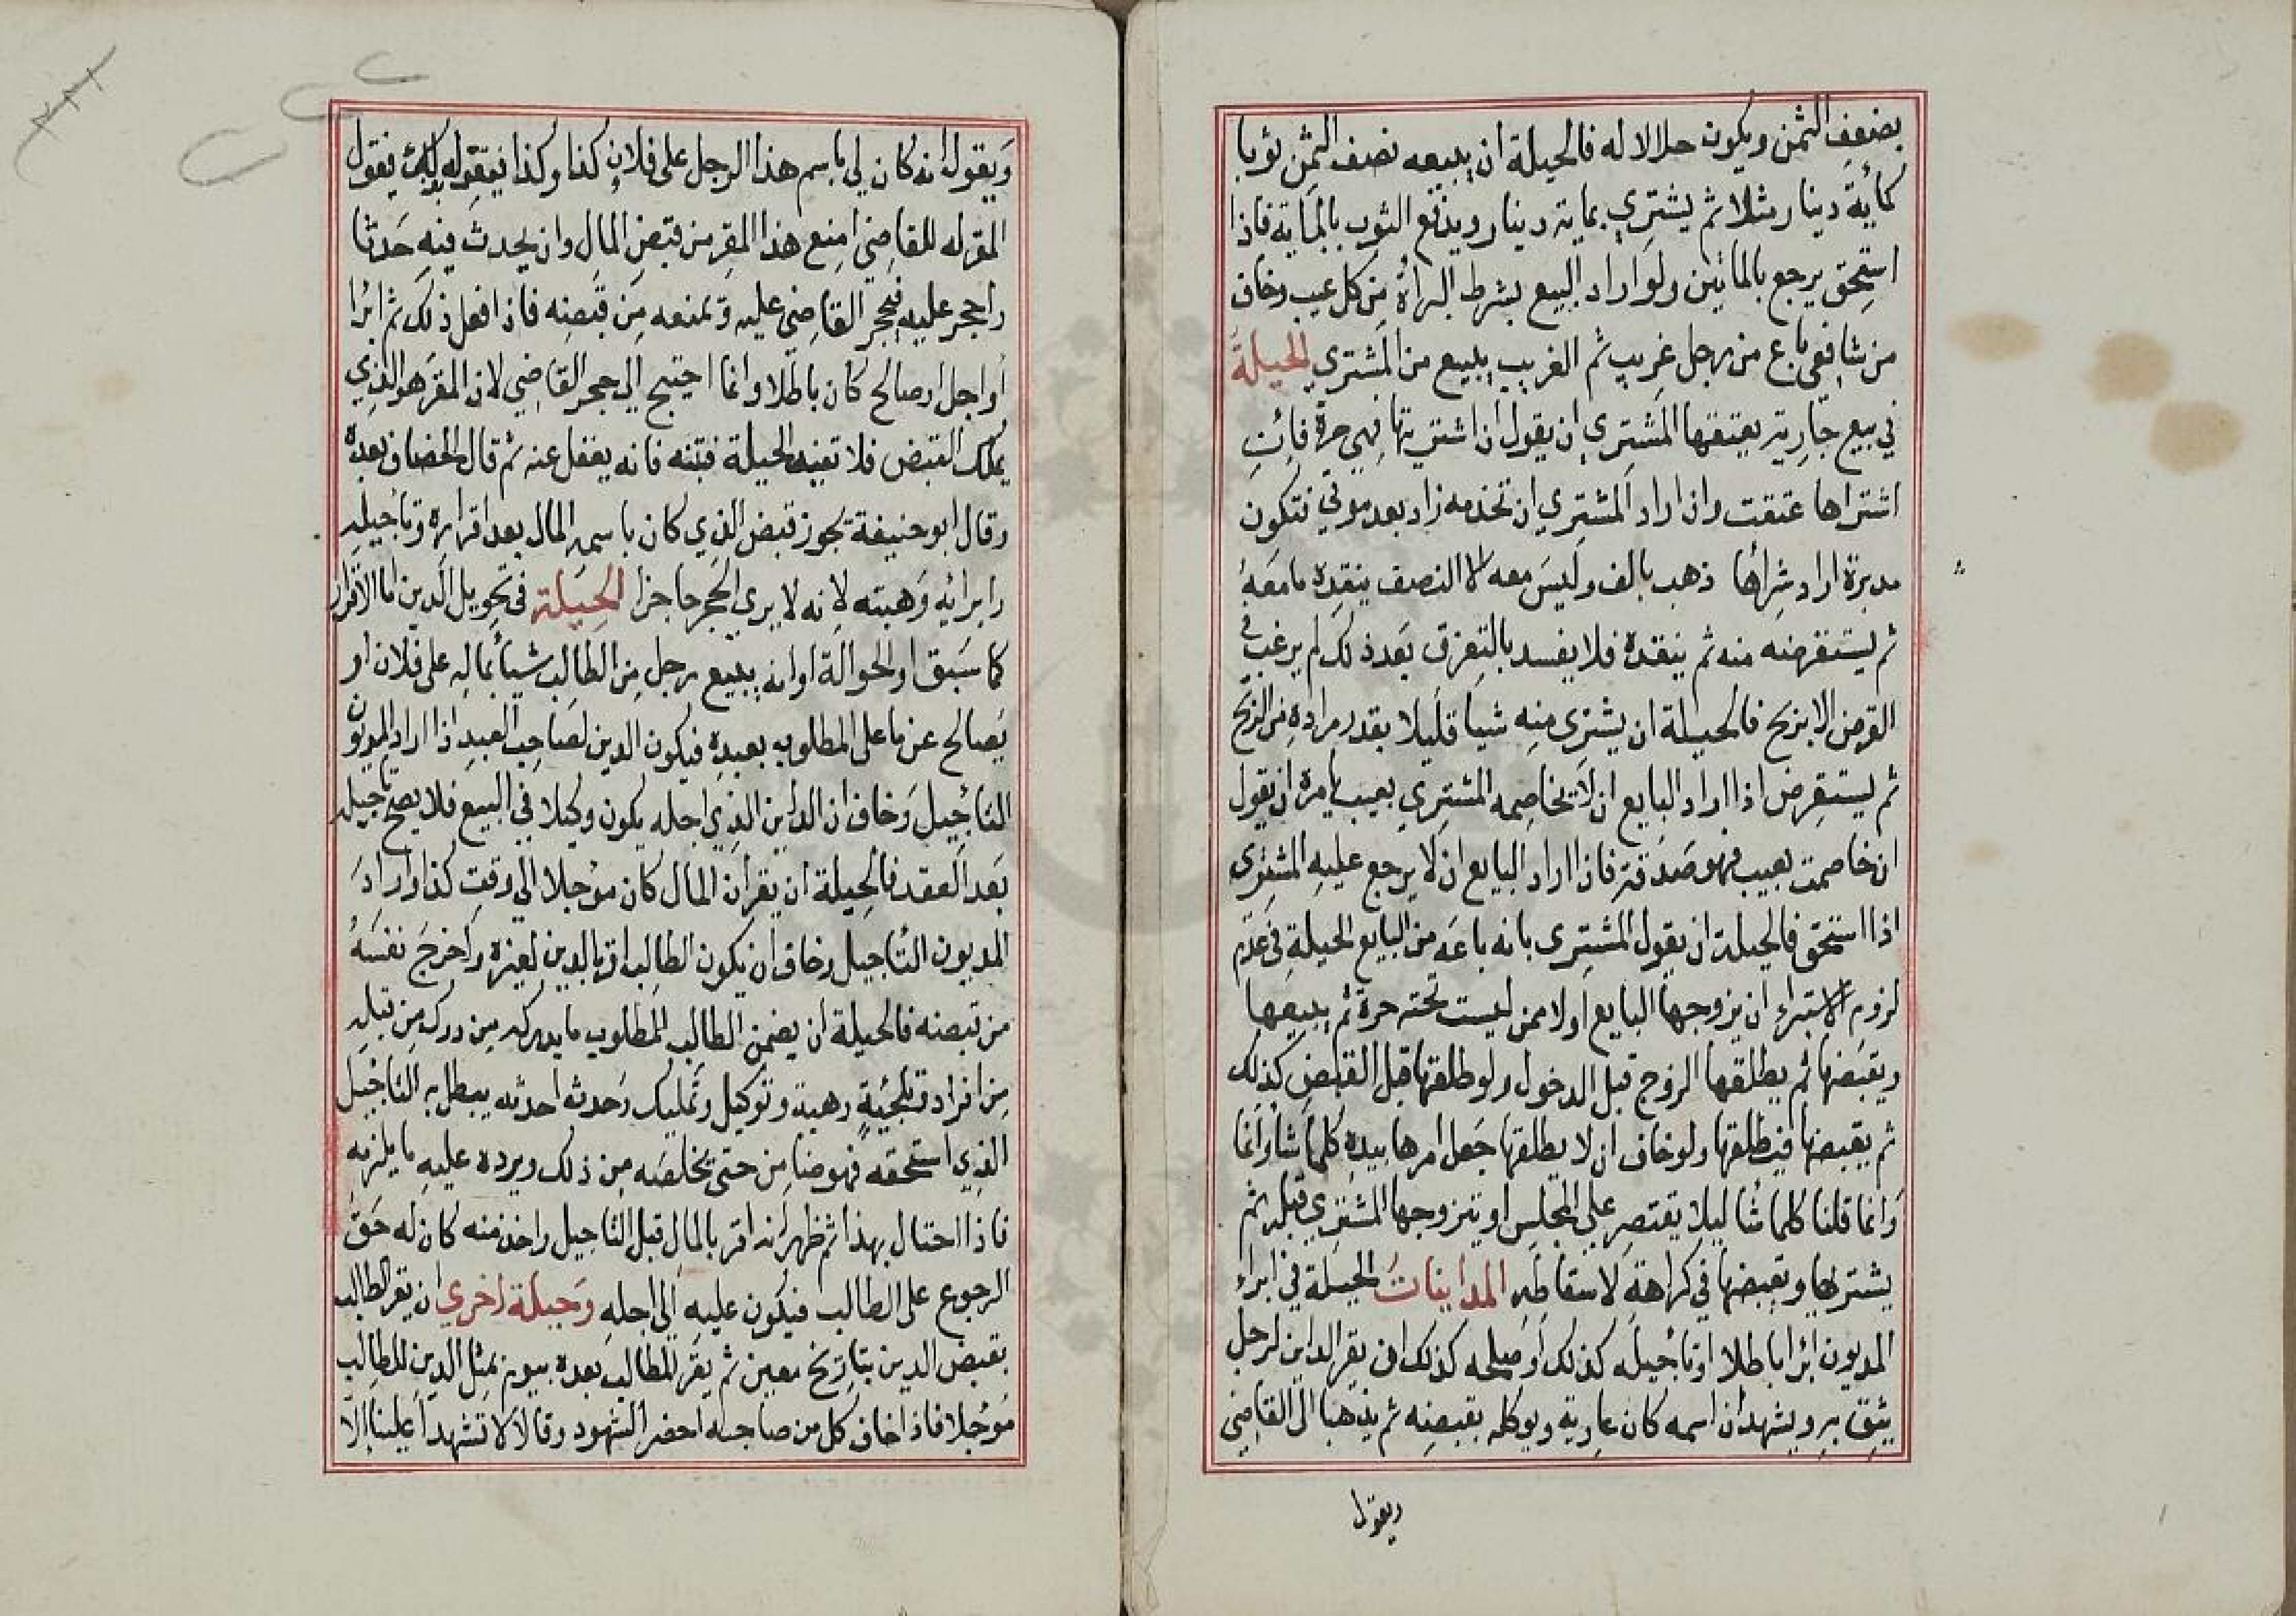 بضعف الثمن ويكون حلالا له فالحيلة ان يبيعه نصف الثمن ثوبا
كمأية دينار مثلا ثم يشتري بماية دينار ويدفع الثوب بالماية فاذا
استحق يرجع بالمأتين ولو اراد البيع بشرط البرأة من كل عيب وخاف
من شافعي باع من رجل غريب ثم الغريب يبيع من المشتري الحيلة
في بيع جارية يعتقها المشتري ان يقول ان اشتريتها فهي حرة فائن
اشتراها عتقت وان اراد المشتري ان تخدمه زاد بعد موتي فتكون
مدبرة اراد شرأها ذهب بالف وليس معه الا النصف ينقده ما معه
ثم يستقرضنه منه ثم ينقده فلا يفسد بالتفرق بعد ذلك لم يرغب في
القرض الا بربح فالحيلة ان يشتري منه شيا قليلا بقدر مراده من الربح
ثم يستقرض اذا اراد البايع ان لا يخاصمه المشتري بعيب يامره ان يقول
ان خاصمت بعيب فهو صدقة فاذا اراد البايع ان لا يرجع عليه المشتري
اذا استحق فالحيلة ان يقول المشتري بانه باعه من البايع الحيلة في عدم
لزوم الاستبراء ان يزوجها البايع اولا ممن ليست تحته حرة ثم يبيعها
ويقبضها ثم يطلقها الزوج قبل الدخول ولو طلقها قبل القبض كذلك
ثم يقبضها فيطلقها ولو خاف ان لا يطلقها جعل امرها بيده كلما شأ وانما
وانما قلنا كلما شأ ليلا يقتصر على المجلس او يتزوجها المشتري قبله ثم
يشتريها ويقبضها في كراهة لاسقاطه المداينات الحيلة في ابراء
المديون ابرأ باطلا او تأجيله كذلك او صلحه كذلك ان يقر الداين لرجل
يثق به ويشهد ان اسمه كان عارية ويوكله بقبضه ثم يذهبا الى القاضي
ويقول
ويقول انه كان لي باسم هذا الرجل على فلان كذا وكذا فيقر له بذلك فيقول
المقر له للقاضي امنع هذا المقر من قبض المال وان يحدث فيه حدثا
واحجر عليه فيحجر القاضي عليه ويمنعه من قبضه فاذا فعل ذلك ثم ابرا
او اجل او صالح كان باطلا وانما احتيج الى حجر القاضي لان المقر هو الذي
يملك القبض فلا تفيد الحيلة فتنبه فانه يغفل عنه ثم قال الخصاف بعده
وقال ابو حنيفة يجوز قبض الذي كان باسمه المال بعد اقراره وتأجيله
وابرائه وهبته لانه لا يرى الحجر حاجزا الحيلة في تحويل الدين اما الاقرار
كما سبق او الحوالة او انه يبيع رجل من الطالب شيأ بماله على فلان او
يصالح عن ما على المطلوب بعبده فيكون الدين لصاحب العبد اذا اراد المديون
التأجيل وخاف ان الداين الذي اجله يكون وكيلا في البيع فلا يصح تأجيله
بعد العقد فالحيلة ان يقر ان المال كان مؤجلا الى وقت كذا واراد
المديون التأجيل وخاف ان يكون الطالب اقر بالدين لغيره واخرج نفسه
من قبضه فالحيلة ان يضمن الطالب المطلوب ما يدركه من درك من قبله
من اقرار وتلجئة وهبة وتوكيل وتمليك وحدث احدثه يبطل به التاجيل
الذي استحقه فهو ضامن حتى يخلصه من ذلك ويرده عليه ما يلزمه
فاذا احتال بهذا ثم ظهر انه اقر بالمال قبل التاجيل واخذ منه كان له حق
الرجوع على الطالب فيكون عليه الى اجله وحيلة اخرى ان يقر الطالب
بقبض الدين بتاريخ معين ثم يقر المطالب بعده بيوم بمثل الدين للطالب
مؤجلا فاذا خاف كل من صاحبه احضر الشهود وقالا لا تشهدا علينا الا